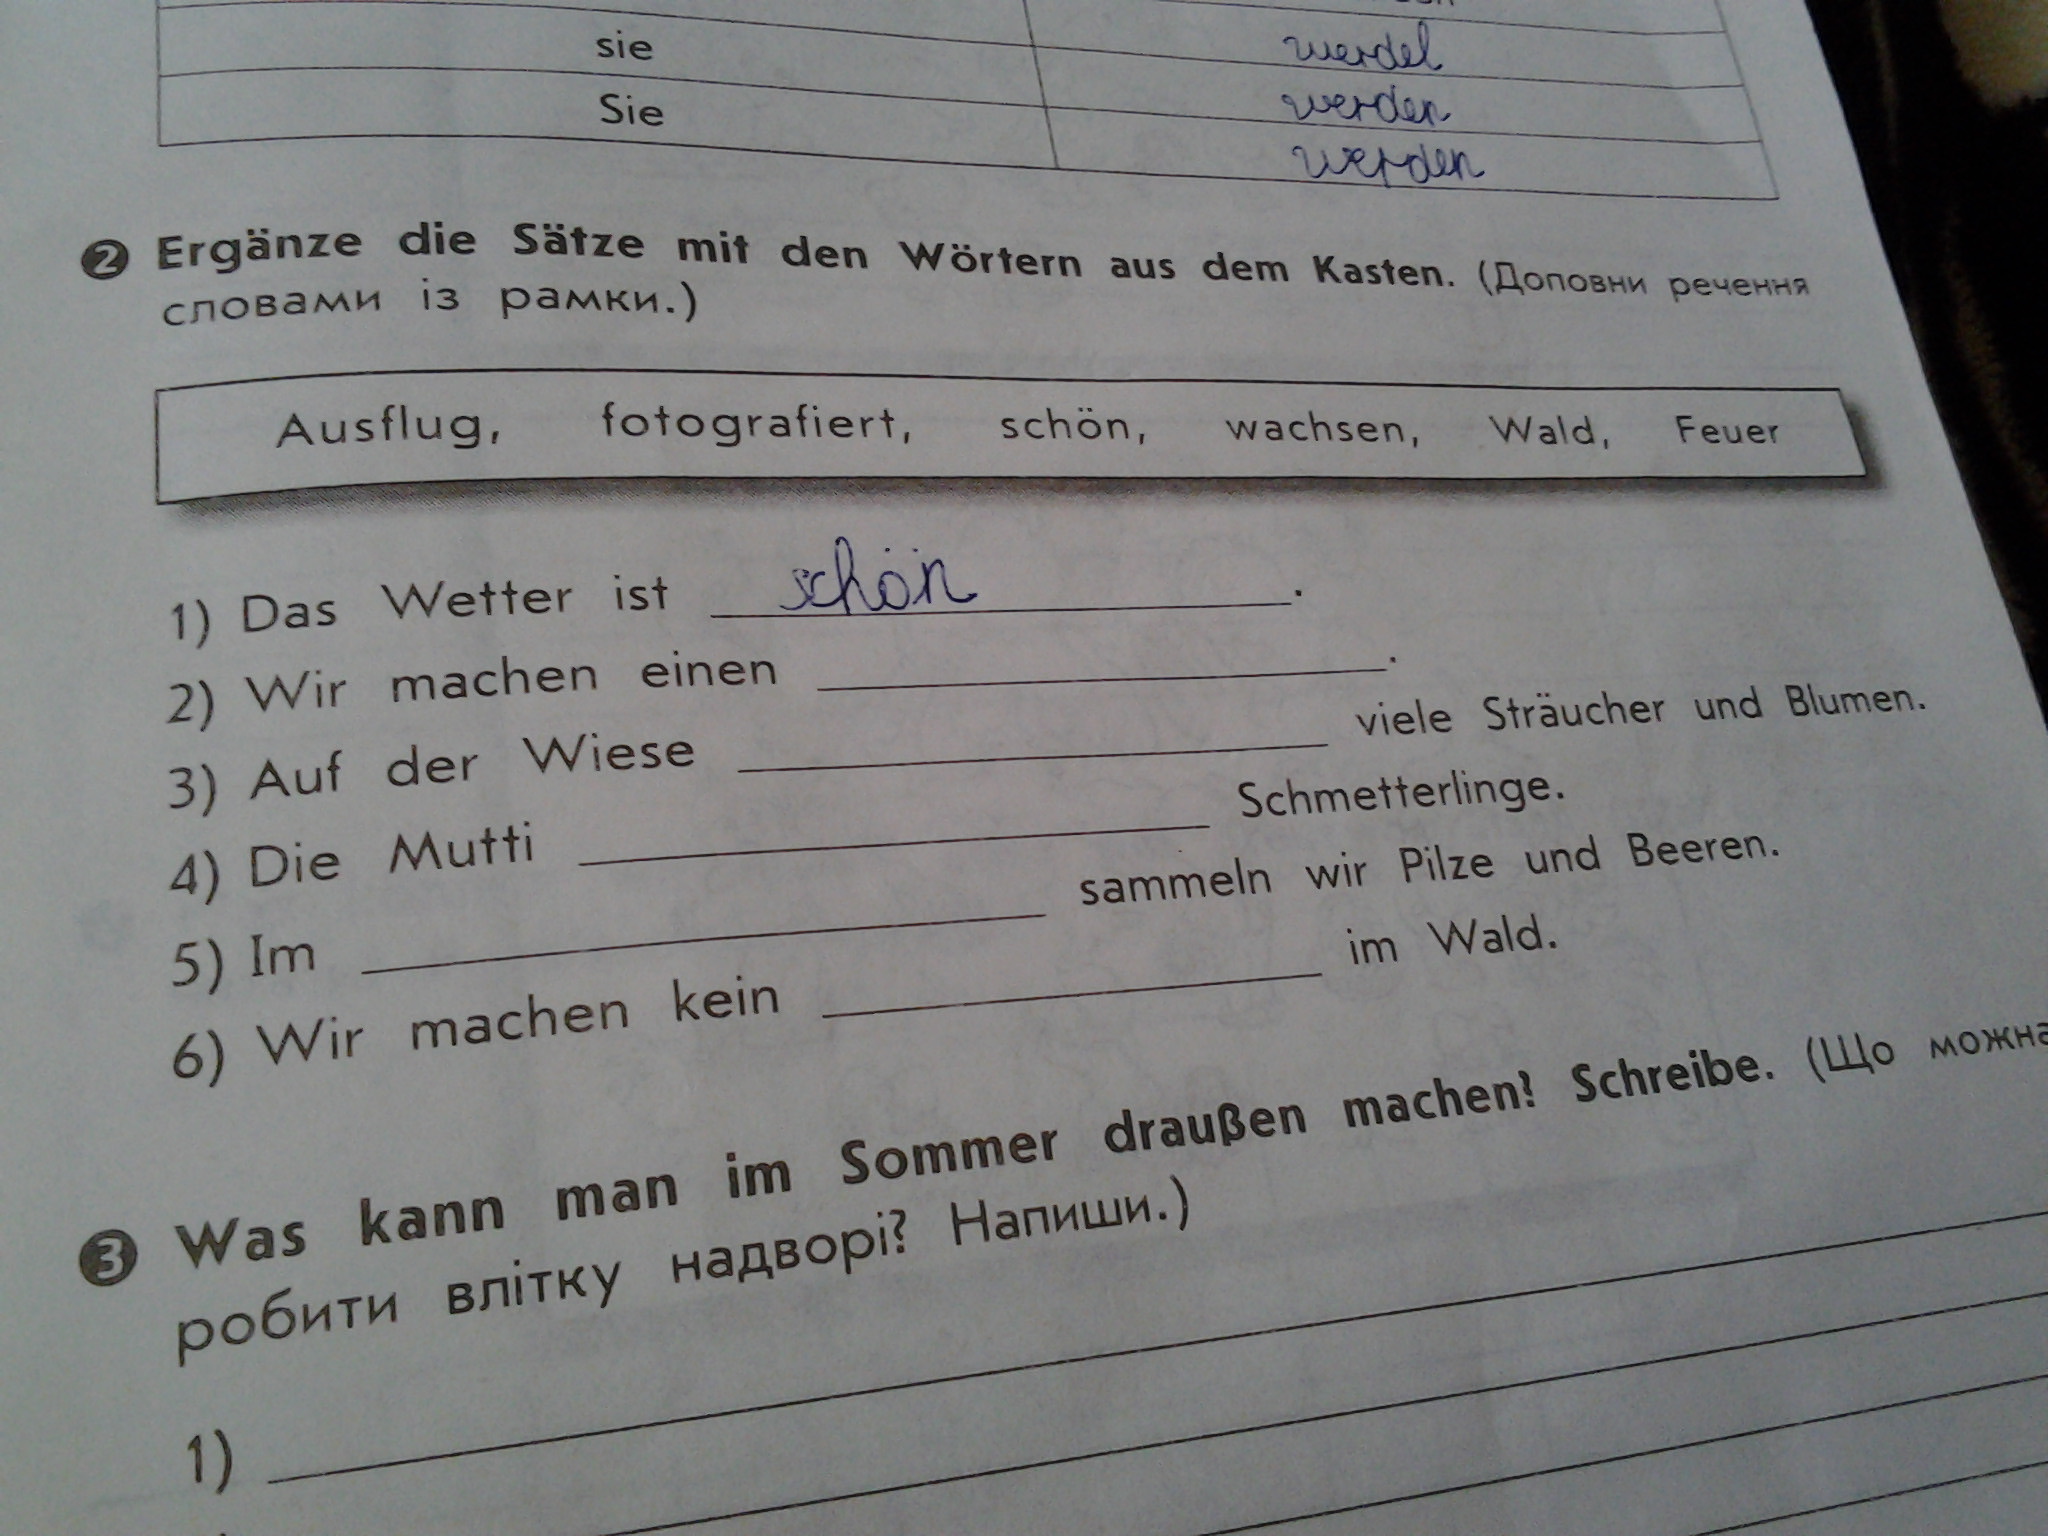 sie werdel
Sie werden
werden
2 Ergänze die Sätze mit den Wörtern aus dem Kasten. (Доповни речення
словами із рамки.)
Ausflug, fotografiert, schön, wachsen, Wald, Feuer
1) Das Wetter ist schön.
2) Wir machen einen ____.
3) Auf der Wiese ____ viele Sträucher und Blumen.
4) Die Mutti ____ Schmetterlinge.
5) Im ____ sammeln wir Pilze und Beeren.
6) Wir machen kein ____ im Wald.
3 Was kann man im Sommer draußen machen? Schreibe. (Що можна
робити влітку надворі? Напиши.)
1)